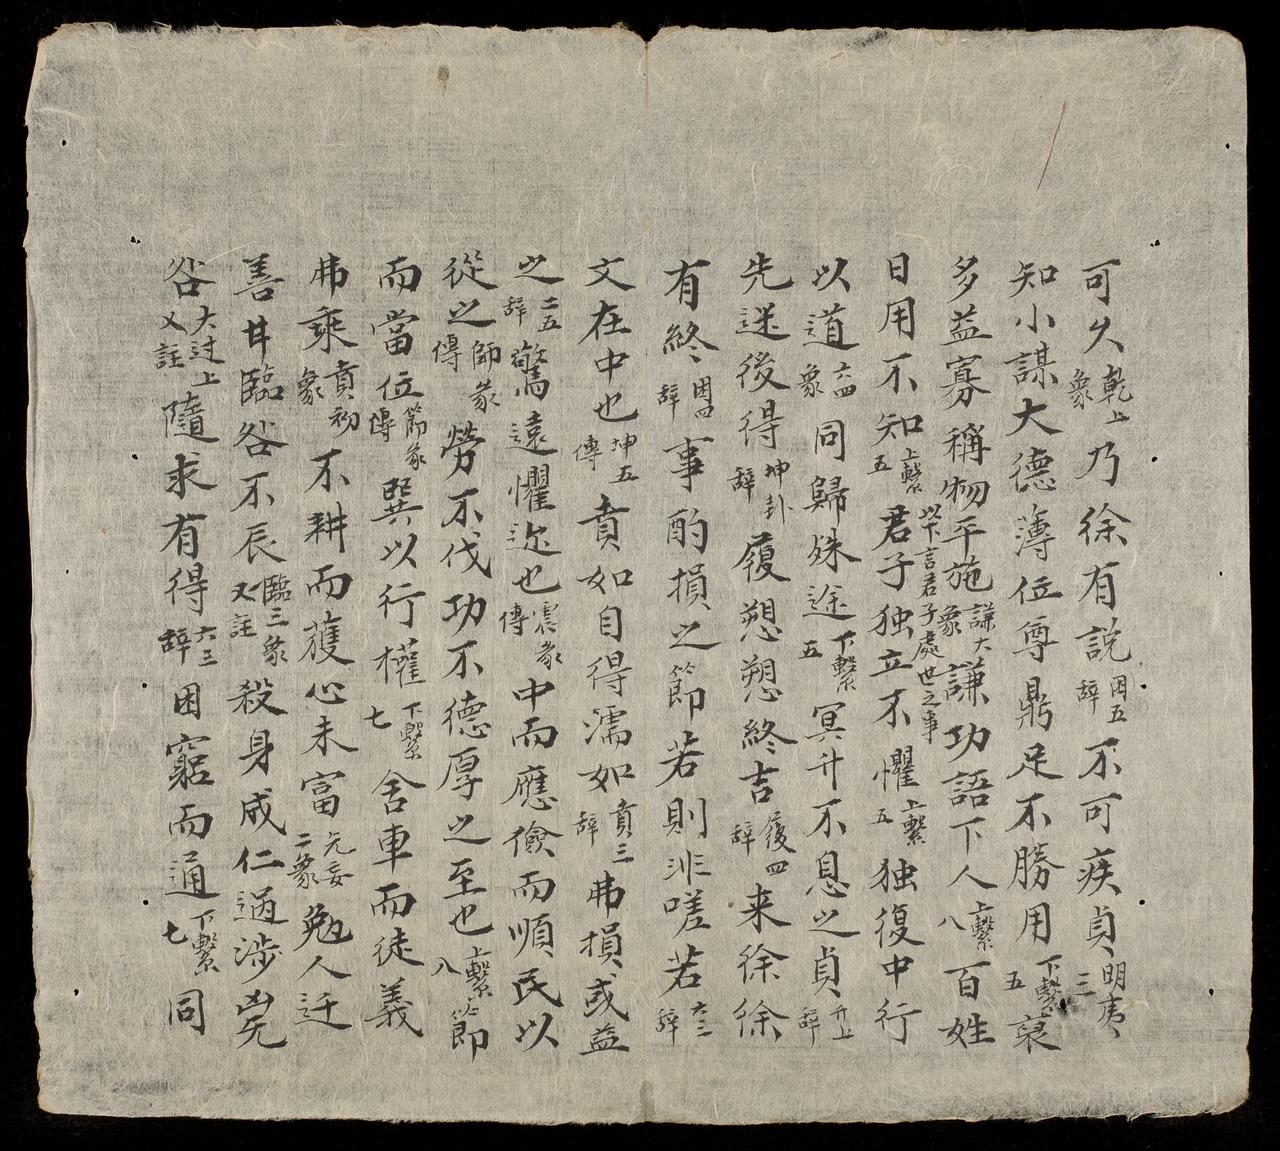 可久乾上象乃徐有説困五辞不可疾貞、明夷、三
知小謀大德薄位尊鼎足不勝用下繫五裒
多益寡稱物平施謙大象謙功語下人上繫八百姓
日用不知上繫五以下言君子處世之事君子独立不懼上繫五独復中行
以道六四象同歸殊途下繫五冥升不息之貞升上辞
先迷後得坤卦辞履愬愬終吉履四辞来徐徐
有終困四辞事酌損之節若則非嗟若六三辞
文在中也坤五傳賁如自得濡如賁三辞弗損或益
之二五辞驚遠懼迩也震彖傳中而應儉而順民以
從之師彖傳勞不伐功不德厚之至也上繫八節
而當位節彖傳巽以行權下繫七舍車而徒義
弗乘賁初象不耕而獲心未富无妄二象勉人迁
善甘臨咎不辰臨三象又註殺身成仁過涉凶无
咎大过上又註隨求有得六三辞困窮而通下繫七同